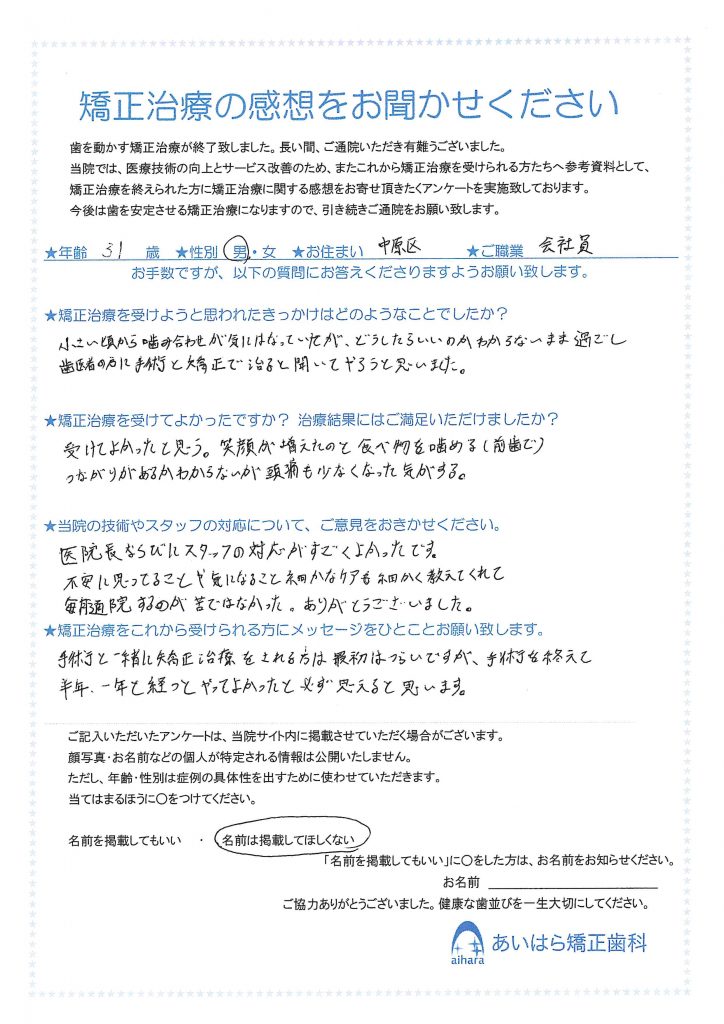 矯正治療の感想をお聞かせください
歯を動かす矯正治療が終了致しました。長い間、ご通院いただき有難うございました。
当院では、医療技術の向上とサービス改善のため、またこれから矯正治療を受けられる方たちへ参考資料として、
矯正治療を終えられた方に矯正治療に関する感想をお寄せ頂きたくアンケートを実施致しております。
今後は歯を安定させる矯正治療になりますので、引き続きご通院をお願い致します。
★年齢 31 歳 ★性別 男・女 ★お住まい 中原区 ★ご職業 会社員
お手数ですが、以下の質問にお答えくださりますようお願い致します。
★矯正治療を受けようと思われたきっかけはどのようなことでしたか？
小さい頃から噛み合わせが気にはなっていたが、どうしたらいいのかわからないまま過ごし
歯医者の方に手術と矯正で治ると聞いてやろうと思いました。
★矯正治療を受けてよかったですか？ 治療結果にはご満足いただけましたか？
受けてよかったと思う。笑顔が増えたのと食べ物を噛める（前歯で）
つながりがあるかわからないが頭痛も少なくなった気がする。
★当院の技術やスタッフの対応について、ご意見をおきかせください。
医院長ならびにスタッフの対応がすごくよかったです。
不安に思ってることや気になること細かなケアも細かく教えてくれて
毎月通院するのが苦ではなかった。ありがとうございました。
★矯正治療をこれから受けられる方にメッセージをひとことお願い致します。
手術と一緒に矯正治療をされる方は最初はつらいですが、手術を終えて
半年、一年と経つとやってよかったと必ず思えると思います。
ご記入いただいたアンケートは、当院サイト内に掲載させていただく場合がございます。
顔写真・お名前などの個人が特定される情報は公開いたしません。
ただし、年齢・性別は症例の具体性を出すために使わせていただきます。
当てはまるほうに〇をつけてください。
名前を掲載してもいい ・ 名前は掲載してほしくない
「名前を掲載してもいい」に〇をした方は、お名前をお知らせください。
お名前
ご協力ありがとうございました。健康な歯並びを一生大切にしてください。
aihara あいはら矯正歯科